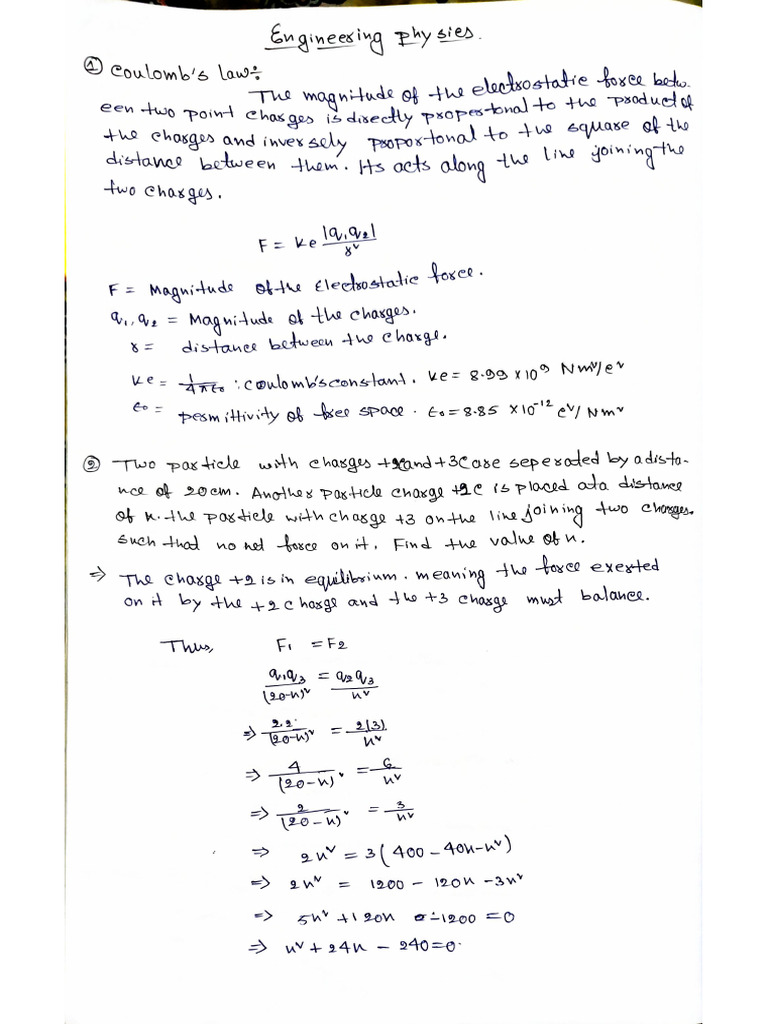 Engineering Physics.
① Coulomb's law:
The magnitude of the electrostatic force betw-
een two point charges is directly propertonal to the product of
the charges and inversely proportonal to the square of the
distance between them. Its acts along the line joining the
two charges.
F = ke |q₁q₂| / r²
F = Magnitude of the Electrostatic force.
q₁, q₂ = Magnitude of the charges.
r = distance between the charge.
ke = 1/4πε₀ : coulomb's constant. ke = 8.99 × 10⁹ Nm²/c²
ε₀ = permittivity of free space. ε₀ = 8.85 × 10⁻¹² c²/Nm²
② Two particle with charges +2 and +3C are seperated by a dista-
nce of 20cm. Another particle charge +2C is placed at a distance
of x. the particle with charge +3 on the line joining two charges.
such that no net force on it. Find the value of x.
⇒ The charge +2 is in equilibrium. meaning the force exerted
on it by the +2 charge and the +3 charge must balance.
Thus, F₁ = F₂
q₁q₃ / (20-x)² = q₂q₃ / x²
⇒ 2.2 / (20-x)² = 2(3) / x²
⇒ 4 / (20-x)² = 6 / x²
⇒ 2 / (20-x)² = 3 / x²
⇒ 2x² = 3(400 - 40x - x²)
⇒ 2x² = 1200 - 120x - 3x²
⇒ 5x² + 120x - 1200 = 0
⇒ x² + 24x - 240 = 0.